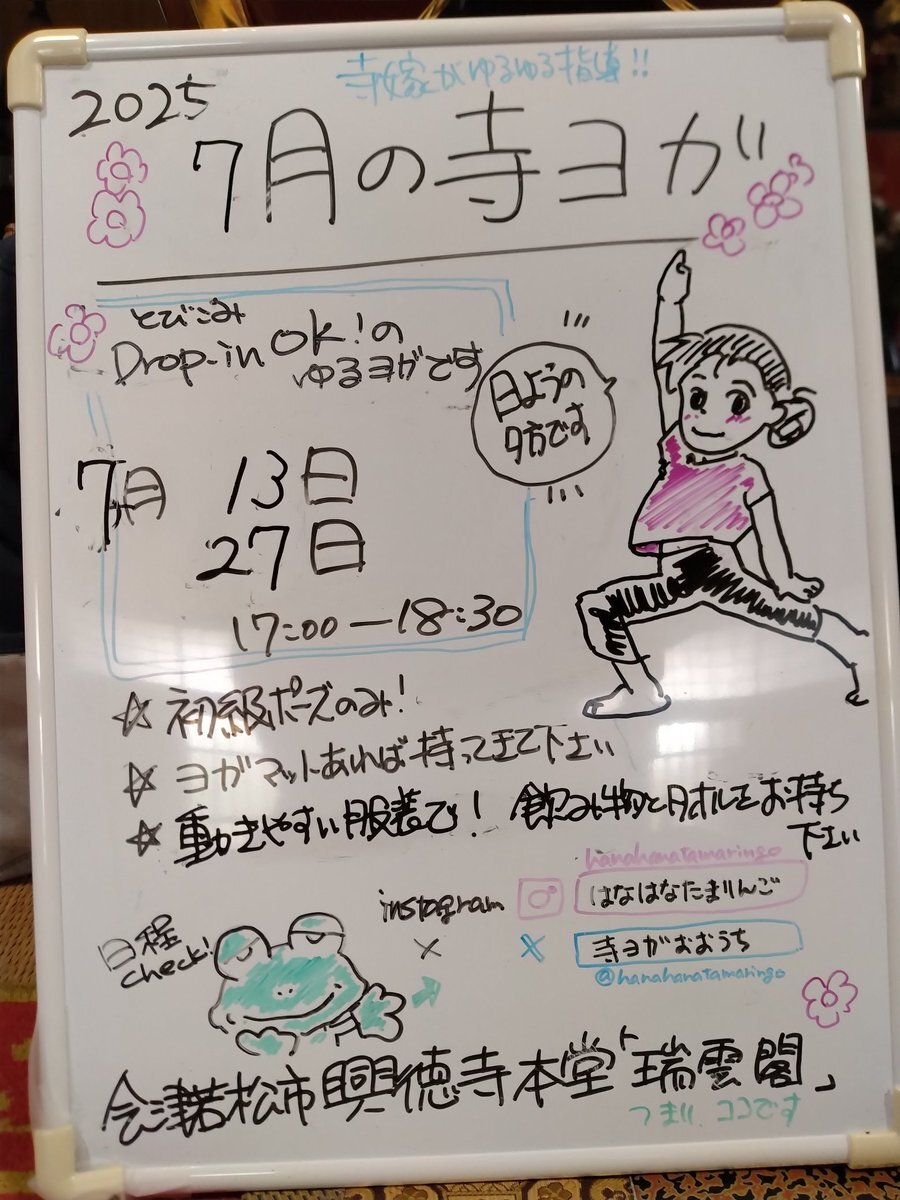 寺嫁がゆるゆる指導!!
2025
7月の寺ヨガ
とびこみ
Drop-in OK!の
ゆるヨガです
日ようの
夕方です
7月 13日
27日
17:00ー18:30
☆ 初級ポーズのみ!
☆ ヨガマットあれば持ってきて下さい
☆ 動きやすい服装で! 飲み物とタオルをお持ち
下さい
hanahanatamaringo
instagram はなはなたまりんご
日程
check!
× X 寺ヨガおおうち
@hanahanatamaringo
会津若松市興徳寺本堂「瑞雲閣」
つまり ココです